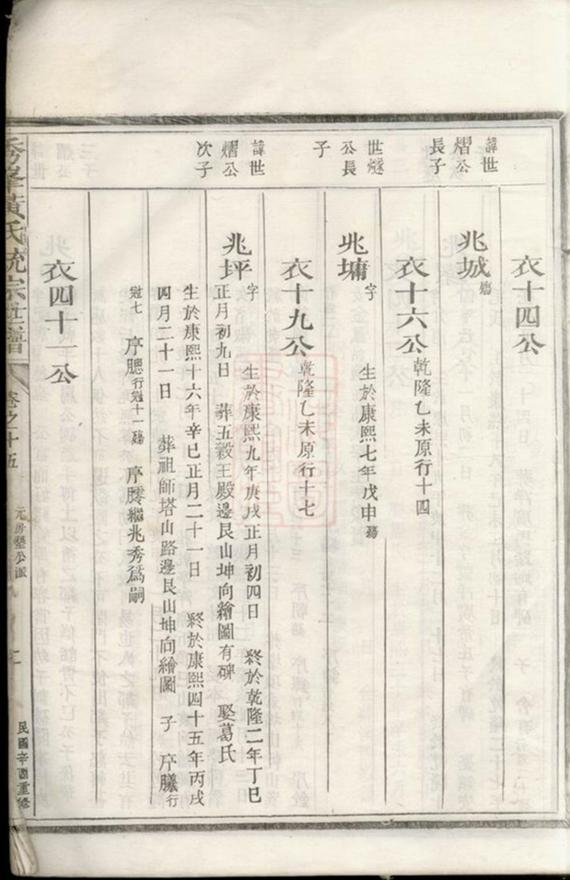 衣十四公
諱世熠公長子
兆城殤
衣十六公乾隆乙未原行十四
世燧公長子
兆墉字 生於康熙七年戊申殤
衣十九公乾隆乙未原行十七
諱世熠公次子
兆坪字 生於康熙九年庚戌正月初四日 終於乾隆二年丁巳
正月初九日 葬五穀王殿邊艮山坤向繪圖有碑 娶葛氏
生於康熙十六年辛巳正月二十一日 終於康熙四十五年丙戌
四月二十一日 葬祖師塔山路邊艮山坤向繪圖 子 序 行
冠七 序 行冠十一殤 序 繼兆秀為嗣
衣四十一公
秀峯黃氏統宗世譜 卷之十五 元房 公派 民國辛酉重修